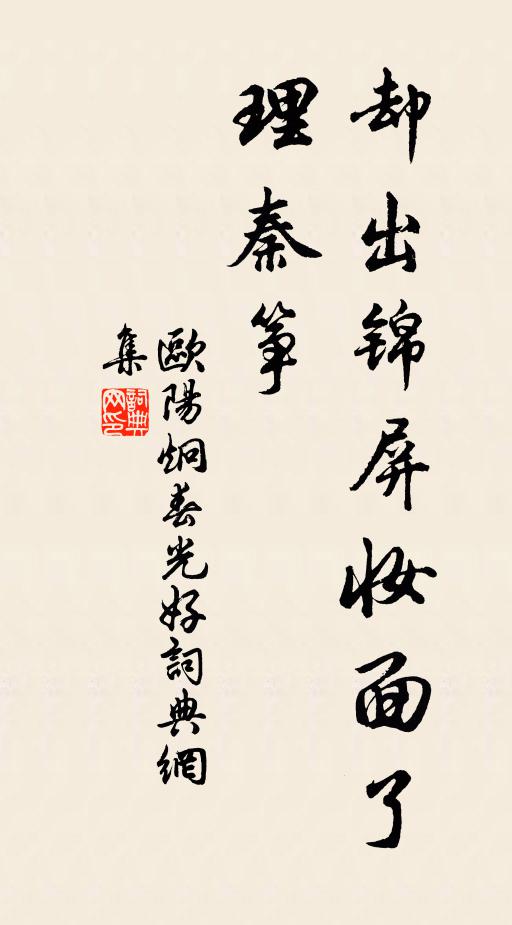 却出锦屏妆面了
理秦筝
歐陽炯春光好詞典網
集
詞典
网印